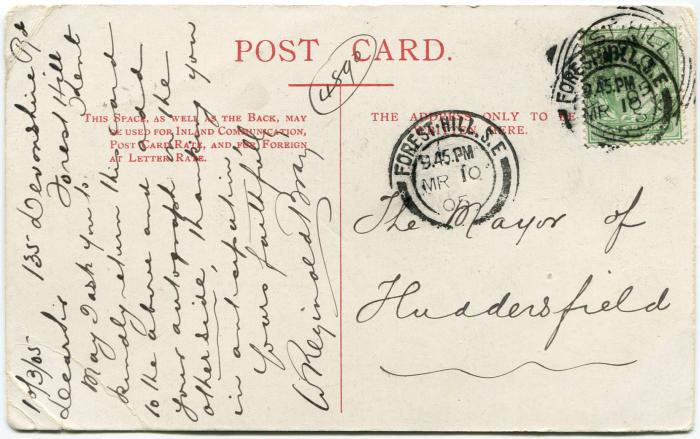 POST CARD.
4892
THIS SPACE, AS WELL AS THE BACK, MAY
BE USED FOR INLAND COMMUNICATION,
POST CARD RATE, AND FOR FOREIGN
AT LETTER RATE.
THE ADDRESS ONLY TO BE
WRITTEN HERE.
FOREST-HILL. S.E
9.45.PM
MR 10
05
FOREST-HILL. S.E
9.45.PM
MR 10
05
The Mayor of
Huddersfield
135 Devonshire Rd
Forest Hill
10/3/05
Dear Sir
May I ask you to
kindly return this card
to the above and add
your autograph on the
other side, thanking you
in anticipation
Yours faithfully
W Reginald Bray